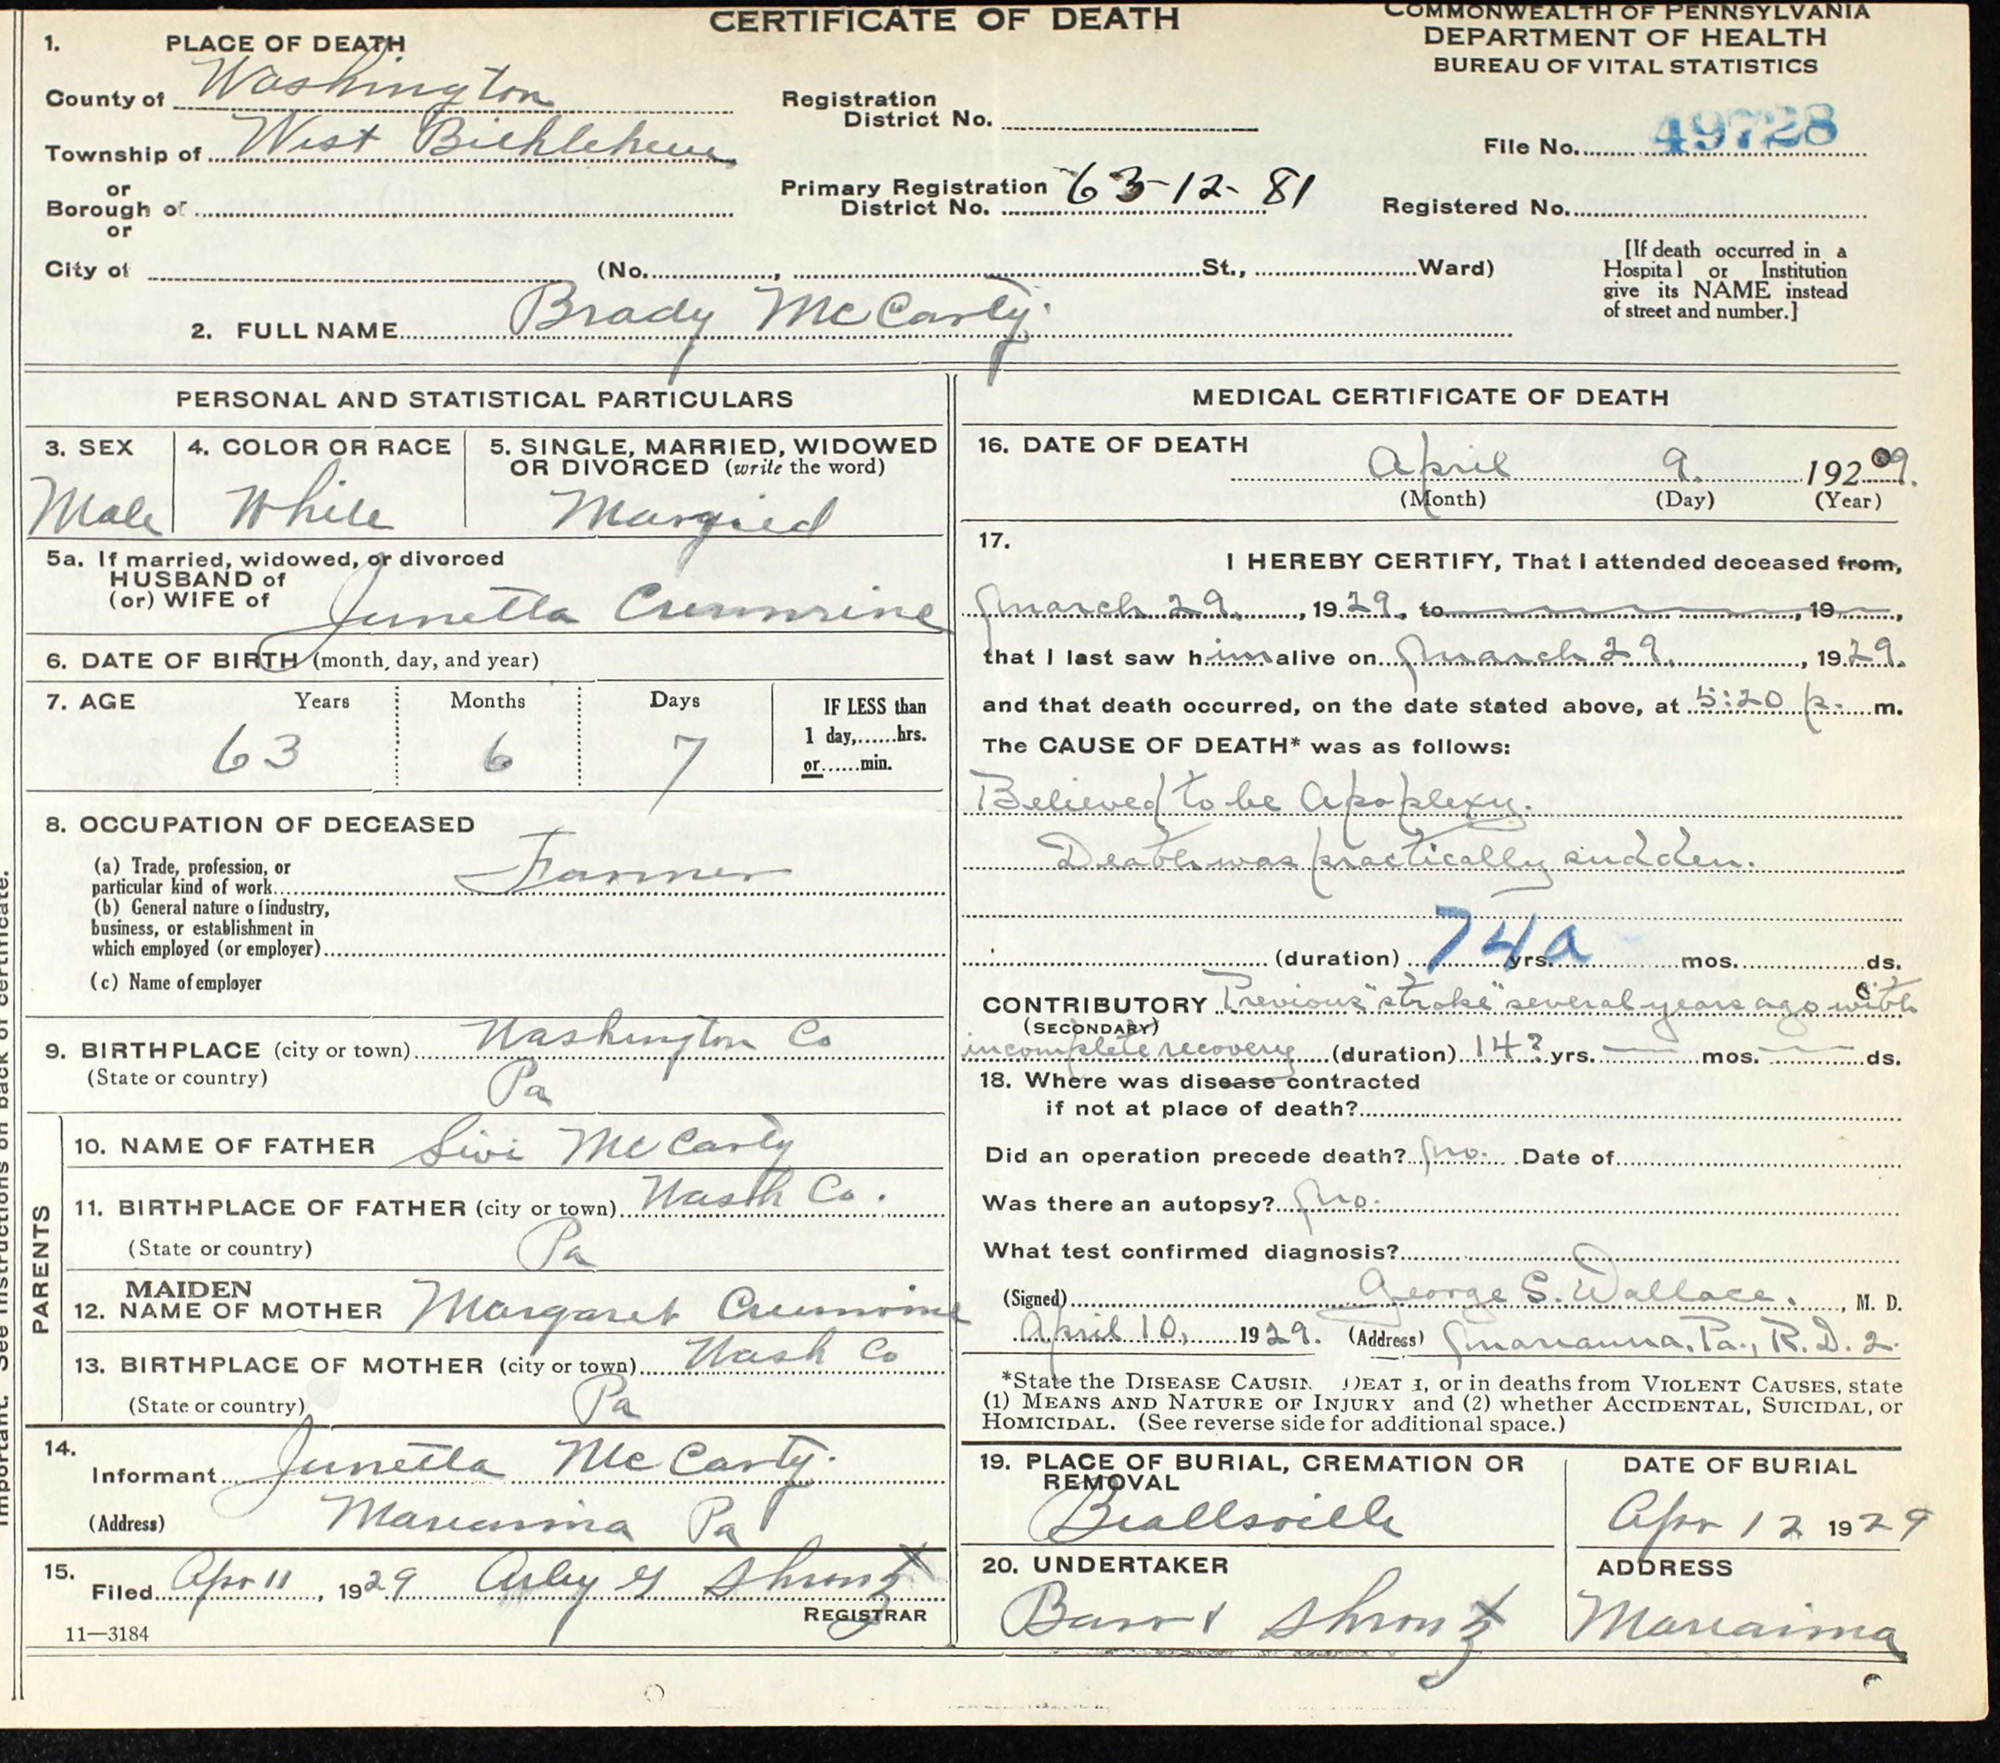 CERTIFICATE OF DEATH
COMMONWEALTH OF PENNSYLVANIA
DEPARTMENT OF HEALTH
BUREAU OF VITAL STATISTICS
1. PLACE OF DEATH
County of Washington
Township of West Bethlehem
or
Borough of
or
City of (No. , St., Ward)
Registration
District No.
Primary Registration
District No. 63-12-81
File No. 49728
Registered No.
[If death occurred in a
Hospital or Institution
give its NAME instead
of street and number.]
2. FULL NAME Brady McCarty.
PERSONAL AND STATISTICAL PARTICULARS
3. SEX
Male
4. COLOR OR RACE
White
5. SINGLE, MARRIED, WIDOWED
OR DIVORCED (write the word)
Married
5a. If married, widowed, or divorced
HUSBAND of
(or) WIFE of Junetta Crumrine
6. DATE OF BIRTH (month, day, and year)
7. AGE Years Months Days
63 6 7
IF LESS than
1 day,......hrs.
or......min.
8. OCCUPATION OF DECEASED
(a) Trade, profession, or
particular kind of work Farmer
(b) General nature of industry,
business, or establishment in
which employed (or employer)
(c) Name of employer
9. BIRTHPLACE (city or town) Washington Co
(State or country) Pa
PARENTS
10. NAME OF FATHER Livi McCarty
11. BIRTHPLACE OF FATHER (city or town) Wash Co.
(State or country) Pa
MAIDEN
12. NAME OF MOTHER Margaret Crumrine
13. BIRTHPLACE OF MOTHER (city or town) Wash Co
(State or country) Pa
14.
Informant Junetta McCarty.
(Address) Marianna Pa
15.
Filed Apr 11, 1929 Arley G Shrontz
REGISTRAR
11—3184
MEDICAL CERTIFICATE OF DEATH
16. DATE OF DEATH
April 9. 1929.
(Month) (Day) (Year)
17.
I HEREBY CERTIFY, That I attended deceased from,
March 29., 1929, to , 19 ,
that I last saw him alive on March 29., 1929.
and that death occurred, on the date stated above, at 5:20 p. m.
The CAUSE OF DEATH* was as follows:
Believed to be Apoplexy.
Death was practically sudden.
74a
(duration) yrs. mos. ds.
CONTRIBUTORY Previous "stroke" several years ago with
(SECONDARY)
incomplete recovery (duration) 14? yrs. — mos. — ds.
18. Where was disease contracted
if not at place of death?
Did an operation precede death? no. Date of
Was there an autopsy? no.
What test confirmed diagnosis?
(Signed) George S. Wallace., M. D.
April 10, 1929. (Address) Marianna, Pa., R.D. 2.
*State the DISEASE CAUSIN DEATH, or in deaths from VIOLENT CAUSES, state
(1) MEANS AND NATURE OF INJURY and (2) whether ACCIDENTAL, SUICIDAL, or
HOMICIDAL. (See reverse side for additional space.)
19. PLACE OF BURIAL, CREMATION OR
REMOVAL
Beallsville
DATE OF BURIAL
Apr 12 1929
20. UNDERTAKER
Barr & Shrontz
ADDRESS
Marianna
important. See instructions on back of certificate.